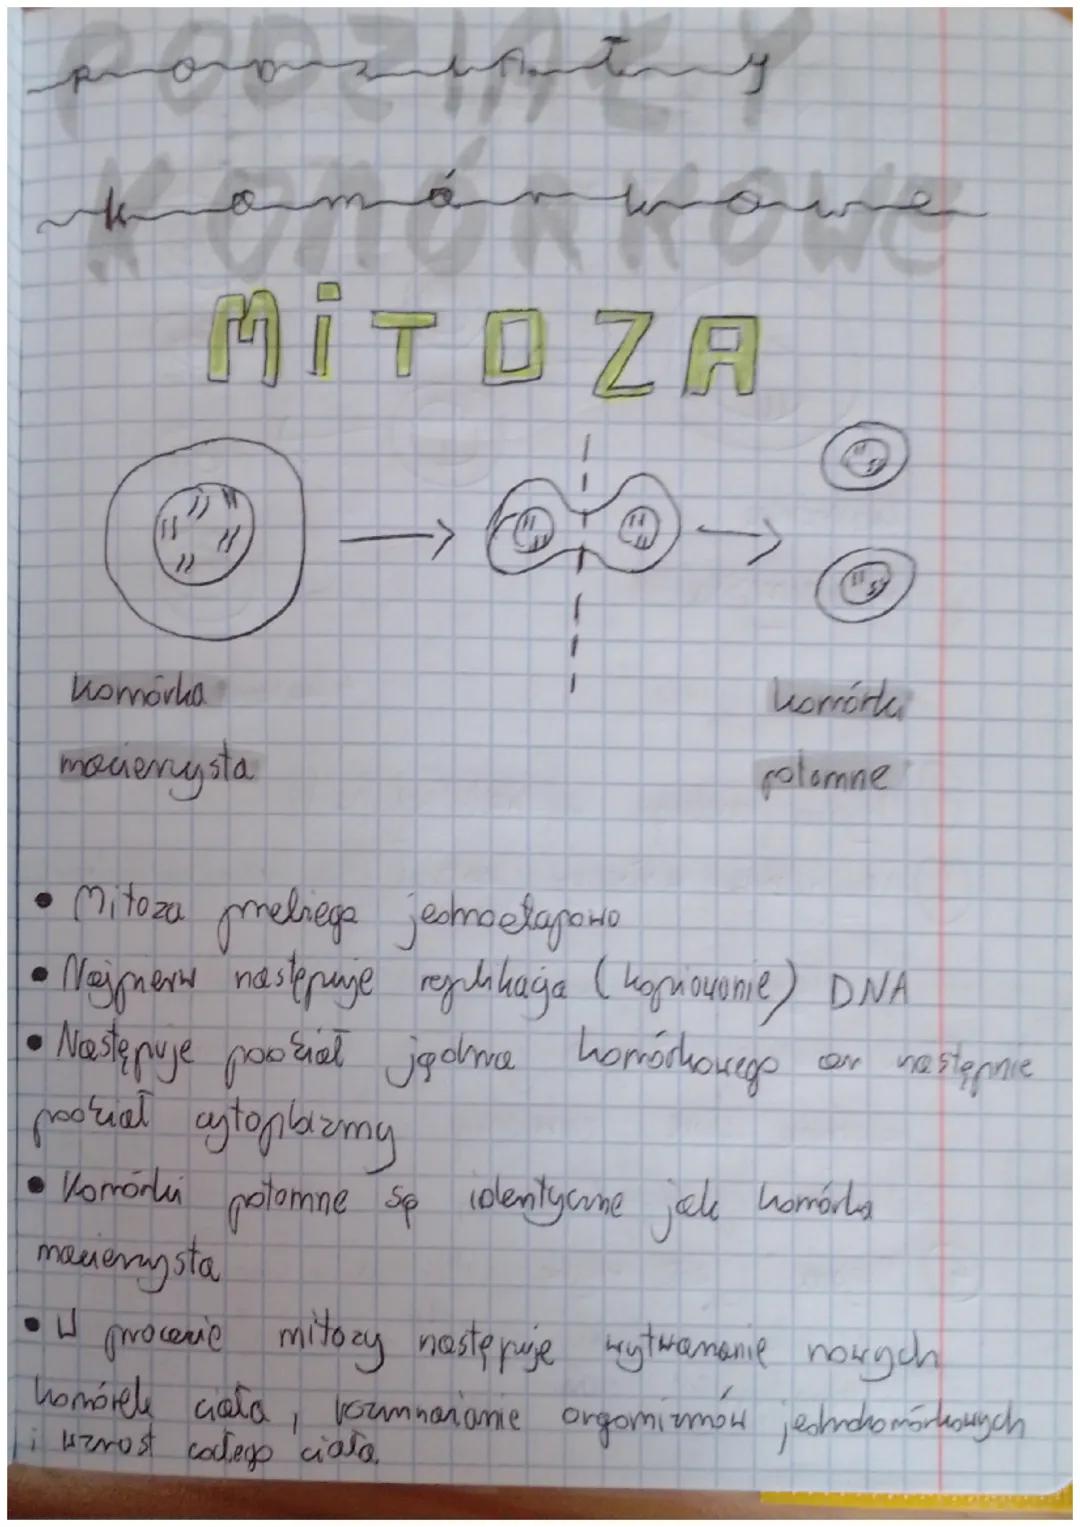 PODZIAŁY
podziały
KOMÓRKOWE
komórkowe
MiTOZA
komórka
macierzysta
komórki
potomne
• Mitoza przebiega jednoetapowo
• Najpierw następuje replikacja (kopiowanie) DNA
• Następuje podział jądra komórkowego oraz następnie
podział cytoplazmy
• Komórki potomne są identyczne jak komórka
macierzysta
• W procesie mitozy następuje wytwarzanie nowych
komórek ciała, rozmnażanie organizmów jednokomórkowych
i wzrost całego ciała.